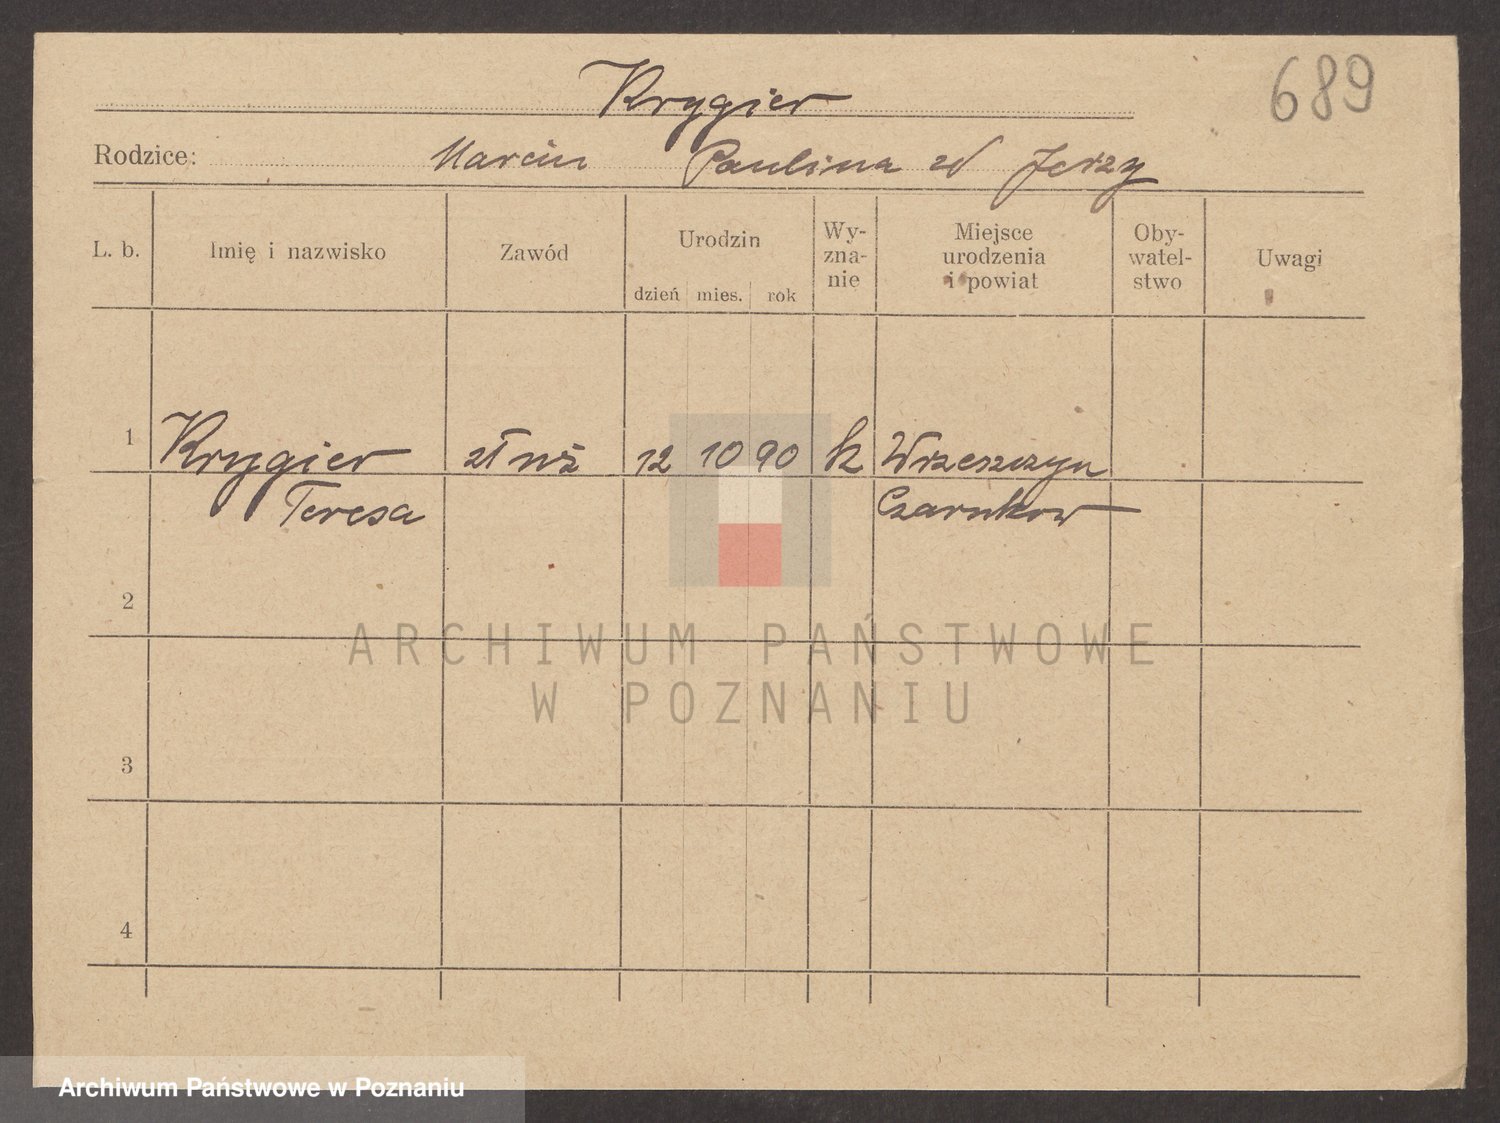 689
Krygier
Rodzice: Marcin Paulina zd Jerzy
L. b. Imię i nazwisko Zawód Urodzin dzień mies. rok Wy-zna-nie Miejsce urodzenia i powiat Oby-watel-stwo Uwagi
1 Krygier 12 10 90 k Wrzeszczyn
Teresa Czarnkow
2
3
4
ARCHIWUM PAŃSTWOWE
W POZNANIU
Archiwum Państwowe w Poznaniu